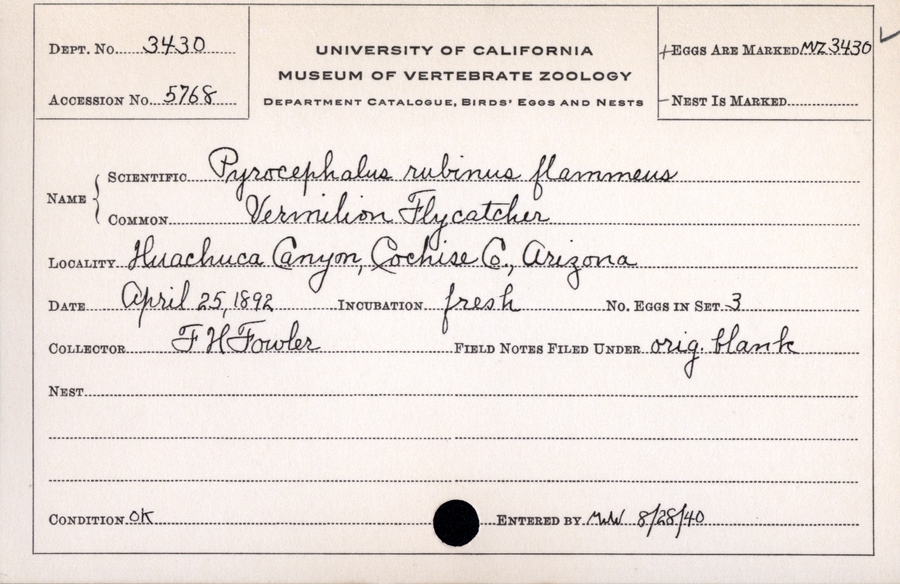 DEPT. No. 3430
ACCESSION No. 5768
UNIVERSITY OF CALIFORNIA
MUSEUM OF VERTEBRATE ZOOLOGY
DEPARTMENT CATALOGUE, BIRDS' EGGS AND NESTS
EGGS ARE MARKED MVZ 3430
NEST IS MARKED
NAME
SCIENTIFIC Pyrocephalus rubinus flammeus
COMMON Vermilion Flycatcher
LOCALITY Huachuca Canyon, Cochise Co., Arizona
DATE April 25, 1892 INCUBATION fresh No. EGGS IN SET 3
COLLECTOR F H Fowler FIELD NOTES FILED UNDER orig. blank
NEST
CONDITION OK ENTERED BY 8/28/40